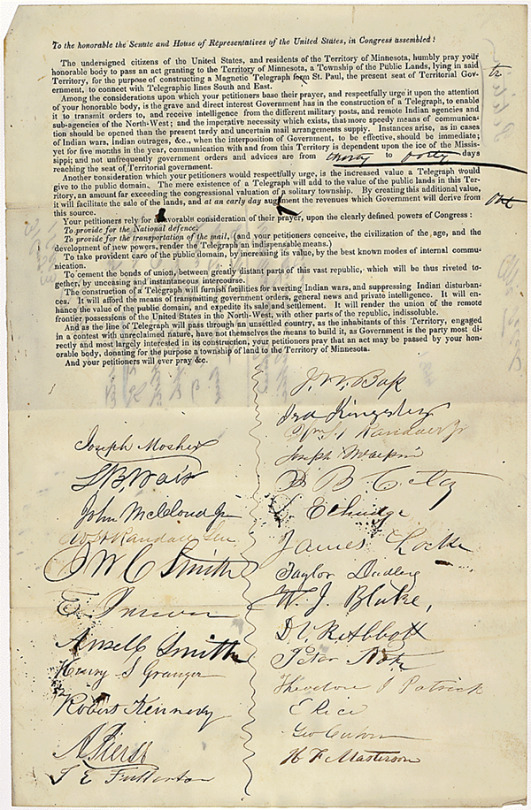 To the honorable the Senate and House of Representatives of the United States, in Congress assembled:
The undersigned citizens of the United States, and residents of the Territory of Minnesota, humbly pray your
honorable body to pass an act granting to the Territory of Minnesota, a Township of the Public Lands, lying in said
Territory, for the purpose of constructing a Magnetic Telegraph from St. Paul, the present seat of Territorial Gov-
ernment, to connect with Telegraphic lines South and East.
Among the considerations upon which your petitioners base their prayer, and respectfully urge it upon the attention
of your honorable body, is the grave and direct interest Government has in the construction of a Telegraph, to enable
it to transmit orders to, and receive intelligence from the different military posts, and remote Indian agencies and
sub-agencies of the North-West; and the imperative necessity which exists, that more speedy means of communica-
tion should be opened than the present tardy and uncertain mail arrangements supply. Instances arise, as in cases
of Indian wars, Indian outrages, &c., when the interposition of Government, to be effective, should be immediate;
yet for five months in the year, communication with and from this Territory is dependent upon the ice of the Missis-
sippi; and not unfrequently government orders and advices are from thirty to forty days
reaching the seat of Territorial government.
Another consideration which your petitioners would respectfully urge, is the increased value a Telegraph would
give to the public domain. The mere existence of a Telegraph will add to the value of the public lands in this Ter-
ritory, an amount far exceeding the congressional valuation of a solitary township. By creating this additional value,
it will facilitate the sale of the lands, and at an early day augment the revenues which Government will derive from
this source.
Your petitioners rely for a favorable consideration of their prayer, upon the clearly defined powers of Congress:
To provide for the National defence;
To provide for the transportation of the mail, (and your petitioners conceive, the civilization of the age, and the
development of new powers, render the Telegraph an indispensable means.)
To take provident care of the public domain, by increasing its value, by the best known modes of internal commu-
nication.
To cement the bonds of union, between greatly distant parts of this vast republic, which will be thus riveted to-
gether, by unceasing and instantaneous intercourse.
The construction of a Telegraph will furnish facilities for averting Indian wars, and suppressing Indian disturban-
ces. It will afford the means of transmitting government orders, general news and private intelligence. It will en-
hance the value of the public domain, and expedite its sale and settlement. It will render the union of the remote
frontier possessions of the United States in the North-West, with other parts of the republic, indissoluble.
And as the line of Telegraph will pass through an unsettled country, as the inhabitants of this Territory, engaged
in a contest with unreclaimed nature, have not themselves the means to build it, as Government is the party most di-
rectly and most largely interested in its construction, your petitioners pray that an act may be passed by your hon-
orable body, donating for the purpose a township of land to the Territory of Minnesota.
And your petitioners will ever pray &c.
Joseph Mosher
John McCloud Jr
W H Randall Sen
J W C Smith
Ansell Smith
Henry S Granger
Robert Kennedy
A. Pierse
S E Fullerton
J. W. Bass
Ira Kingsley
Wm H Randall Jr
Joseph
James Locke
Taylor Dudley
W. J. Blake,
Peter
Theodore P Patrick
E Rice
Geo
H F Masterson